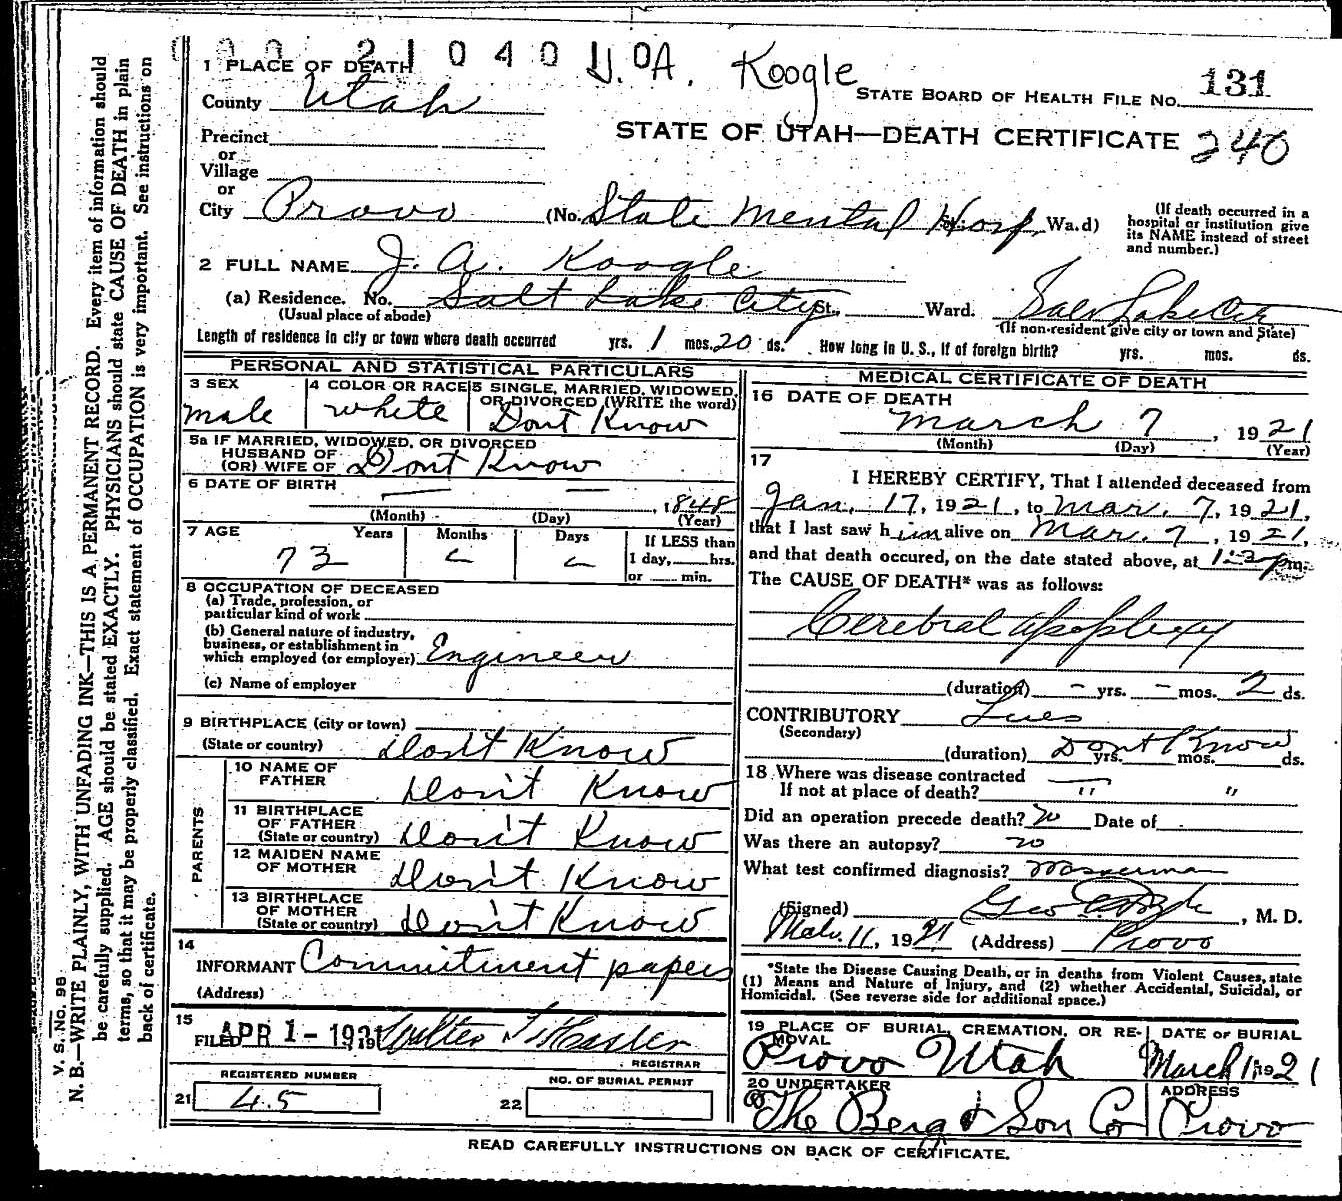 000 21040 J. A. Koogle
1 PLACE OF DEATH
County Utah
STATE BOARD OF HEALTH FILE NO. 131
STATE OF UTAH—DEATH CERTIFICATE 240
Precinct
or
Village
or
City Provo (No. State Mental Hosp. Ward)
(If death occurred in a
hospital or institution give
its NAME instead of street
and number.)
2 FULL NAME J. A. Koogle
(a) Residence. No. Salt Lake City St., Ward. Salt Lake City
(Usual place of abode) (If non-resident give city or town and State)
Length of residence in city or town where death occurred yrs. 1 mos. 20 ds. How long in U. S., if of foreign birth? yrs. mos. ds.
PERSONAL AND STATISTICAL PARTICULARS
3 SEX
male
4 COLOR OR RACE
white
5 SINGLE, MARRIED, WIDOWED,
OR DIVORCED (WRITE the word)
Dont Know
5a IF MARRIED, WIDOWED, OR DIVORCED
HUSBAND OF
(OR) WIFE OF Dont Know
6 DATE OF BIRTH
— — , 1848
(Month) (Day) (Year)
7 AGE Years Months Days If LESS than
73 1 day, hrs.
or min.
8 OCCUPATION OF DECEASED
(a) Trade, profession, or
particular kind of work
(b) General nature of industry,
business, or establishment in
which employed (or employer) Engineer
(c) Name of employer
9 BIRTHPLACE (city or town)
(State or country) Don't Know
PARENTS
10 NAME OF
FATHER Don't Know
11 BIRTHPLACE
OF FATHER
(State or country) Don't Know
12 MAIDEN NAME
OF MOTHER Don't Know
13 BIRTHPLACE
OF MOTHER
(State or country) Don't Know
14
INFORMANT Commitment papers
(Address)
15
FILED APR 1 - 1921, 19 Walter T. Hasler
REGISTRAR
REGISTERED NUMBER
21 45
NO. OF BURIAL PERMIT
22
MEDICAL CERTIFICATE OF DEATH
16 DATE OF DEATH
March 7, 1921
(Month) (Day) (Year)
17
I HEREBY CERTIFY, That I attended deceased from
Jan. 17, 1921, to Mar. 7, 1921,
that I last saw him alive on Mar. 7, 1921,
and that death occured, on the date stated above, at m.
The CAUSE OF DEATH* was as follows:
Cerebral apoplexy
(duration) - yrs. - mos. 2 ds.
CONTRIBUTORY Lues
(Secondary)
(duration) Dont Know yrs. mos. ds.
18 Where was disease contracted
If not at place of death? " "
Did an operation precede death? No Date of
Was there an autopsy? no
What test confirmed diagnosis? Wasserman
(Signed) Geo , M. D.
Mch. 11, 1921 (Address) Provo
*State the Disease Causing Death, or in deaths from Violent Causes, state
(1) Means and Nature of Injury, and (2) whether Accidental, Suicidal, or
Homicidal. (See reverse side for additional space.)
19 PLACE OF BURIAL, CREMATION, OR RE-
MOVAL
Provo Utah
DATE OF BURIAL
March 1921
20 UNDERTAKER
The Berg & Son Co
ADDRESS
Provo
READ CAREFULLY INSTRUCTIONS ON BACK OF CERTIFICATE.
V. S. No. 98
N. B.—WRITE PLAINLY, WITH UNFADING INK—THIS IS A PERMANENT RECORD. Every item of information should
be carefully supplied. AGE should be stated EXACTLY. PHYSICIANS should state CAUSE OF DEATH in plain
terms, so that it may be properly classified. Exact statement of OCCUPATION is very important. See instructions on
back of certificate.